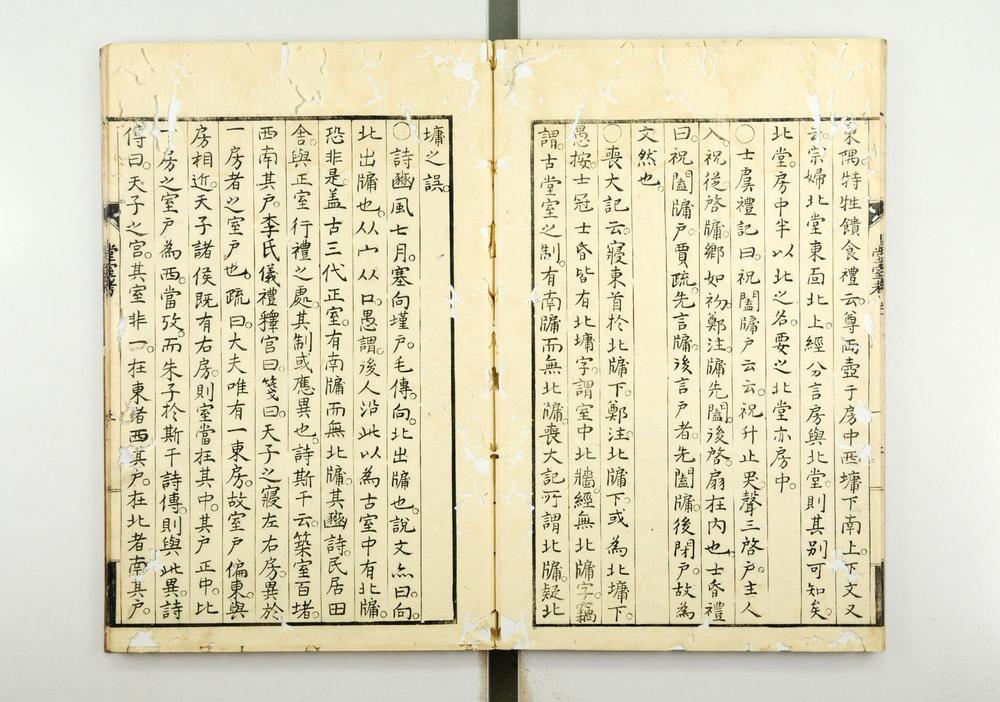 東隅。特牲饋食禮云。尊兩壺于房中西墉下南上。下文又
云。宗婦北堂東面北上。經分言房與北堂。則其別可知矣。
北堂。房中半以北之名。要之北堂亦房中。
〇士虞禮記曰。祝闔牖户云云。祝升止哭。聲三啓户。主人
入。祝從啓牖鄉如初。鄭注。牖先闔。後啓。扇在内也。士昏禮
曰。祝闔牖户。賈疏。先言牖後言户者。先闔牖。後閉户。故為
文然也。
〇喪大記云。寢東首於北牖下。鄭注。北牖下。或為北墉下。
愚按。士冠士昏皆有北墉字。謂室中北牆。經無北牖字。竊
謂。古堂室之制。有南牖而無北牖。喪大記所謂北牖。疑北
墉之誤。
〇詩豳風七月。塞向墐户。毛傳。向。北出牖也。說文亦曰。向。
北出牖也。从宀从口。愚謂。後人沿此以為古室中有北牖。
恐非是。盖古三代正室。有南牖而無北牖。其豳詩。民居田
舍。與正室行禮之處。其制或應異也。詩斯干云。築室百堵。
西南其户。李氏儀禮釋宮曰。箋曰。天子之寢左右房。異於
一房者之室户也。疏曰。大夫唯有一東房。故室户偏東。與
房相近。天子諸侯既有右房。則室當在其中。其户正中。比
一房之室户為西。當攷。而朱子於斯干詩傳。則與此異。詩
傳曰。天子之宮。其室非一。在東者西其户。在北者南其户。
堂室考